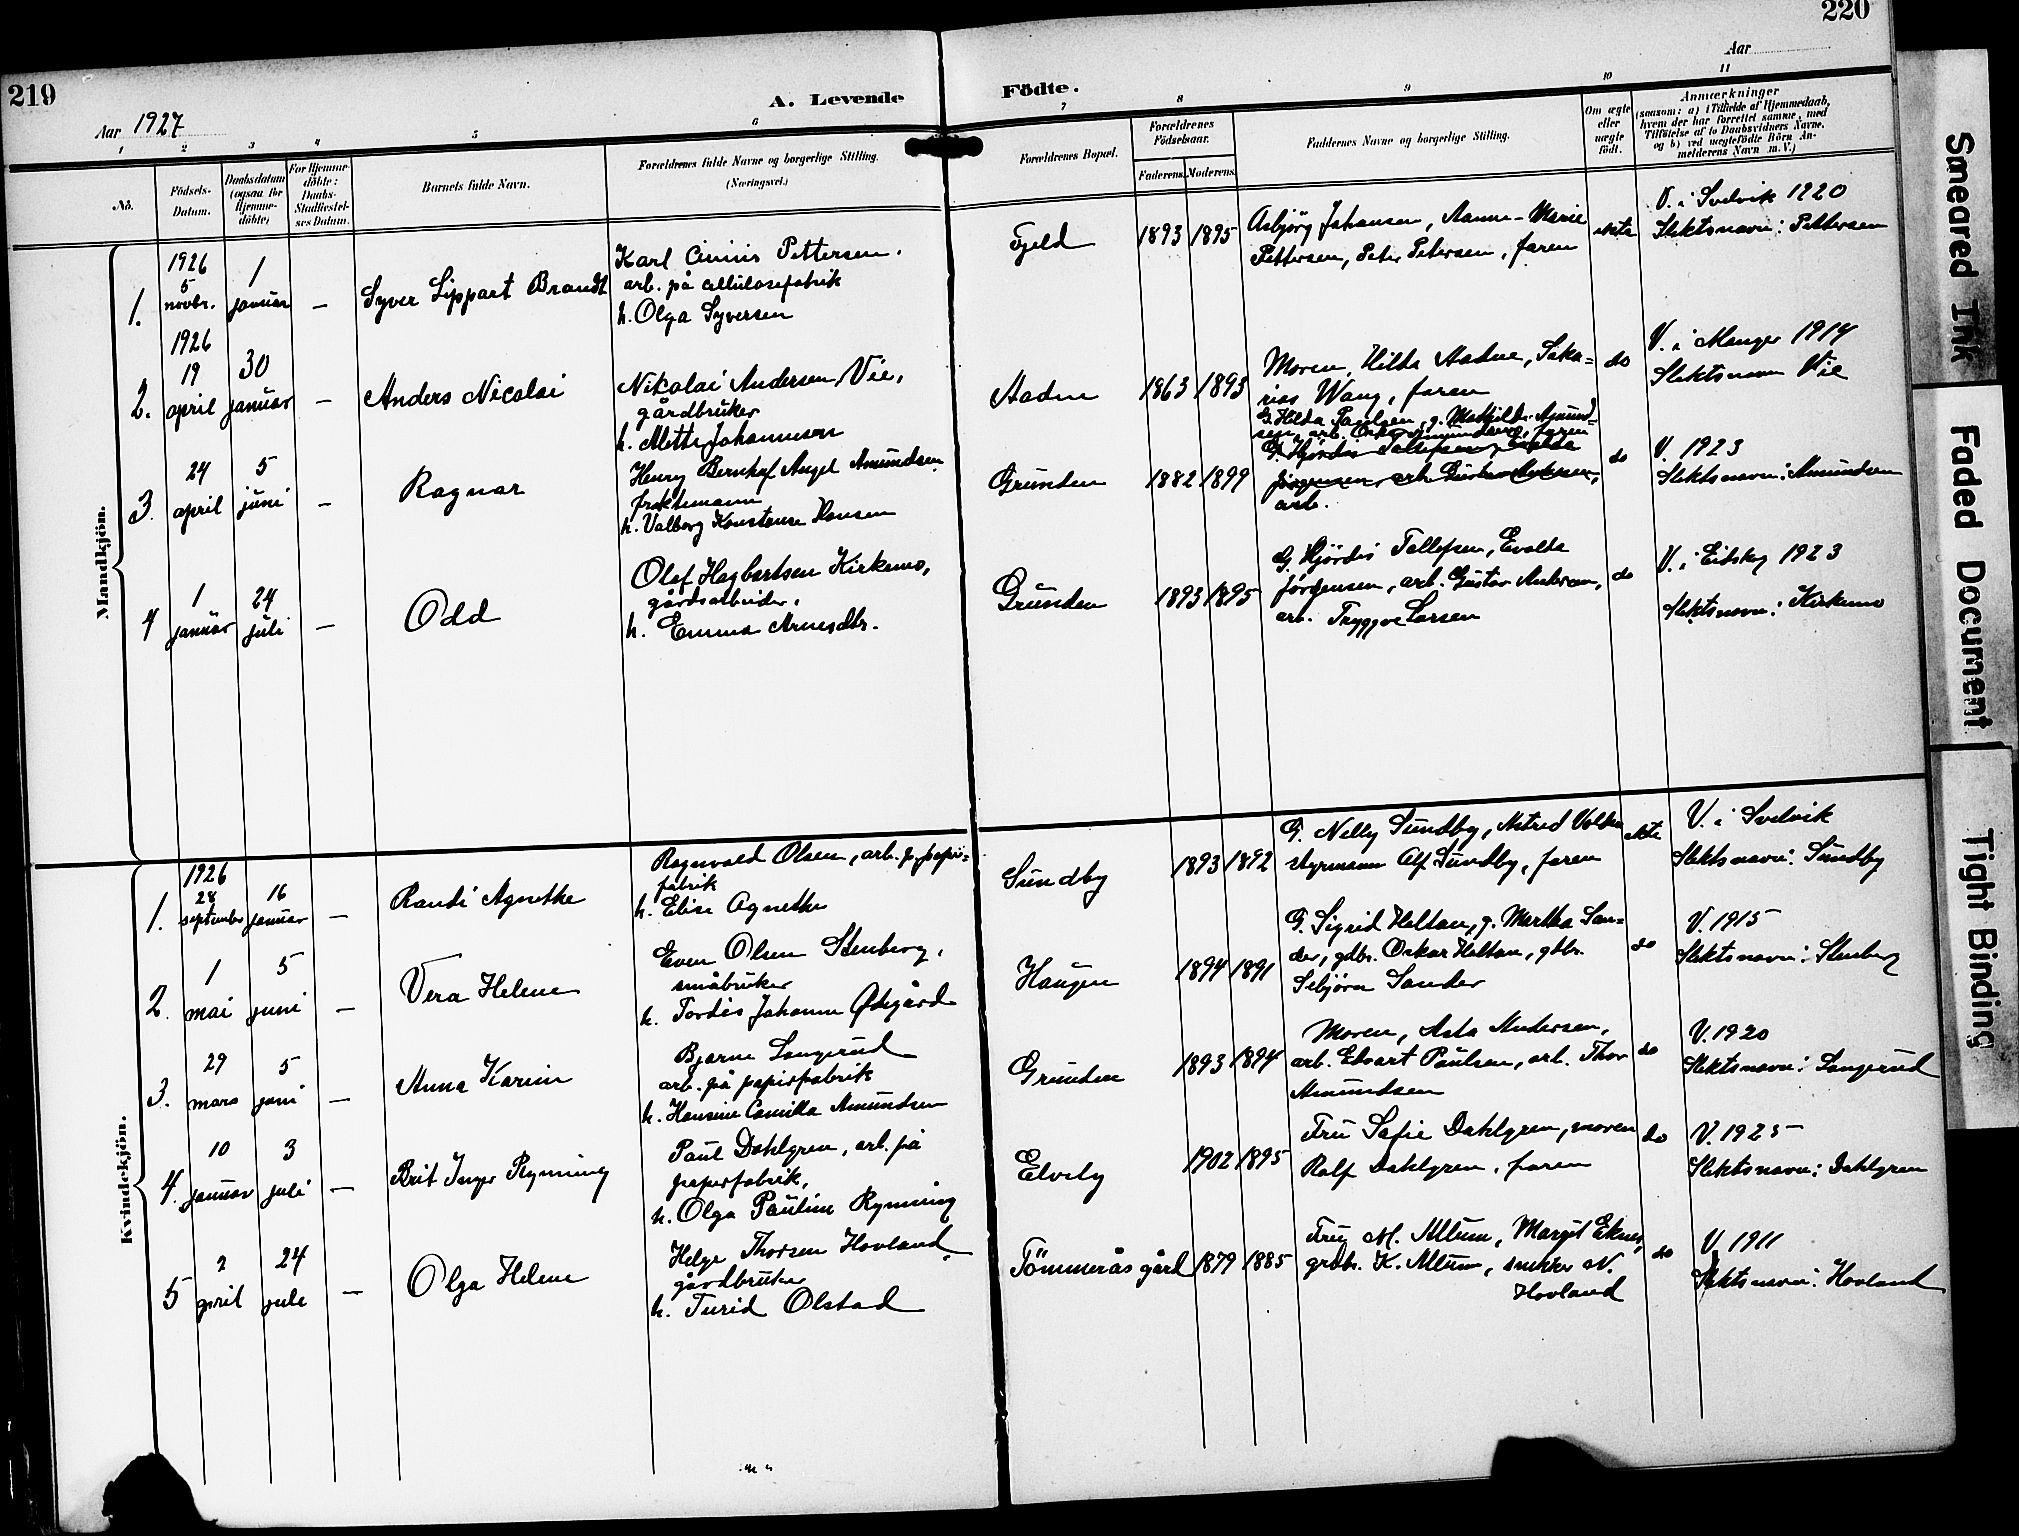 219
220
Aar 1927
A. Levende Födte.
Aar
1 2 3 4 5 6 7 8 9 10 11
No.
Födsels-
Datum.
Daabsdatum
(ogsaa for
Hjemme-
döbte)
For Hjemme-
döbte:
Daabs-
Stadfæstel-
ses Datum.
Barnets fulde Navn.
Forældrenes fulde Navne og borgerlige Stilling.
(Næringsvei.)
Forældrenes Bopæl.
Forældrenes
Födselsaar.
Faderens. Moderens.
Faddernes Navne og borgerlige Stilling.
Om ægte
eller
uægte
födt.
Anmærkninger
(saasom: a) i Tilfælde af Hjemmedaab,
hvem der har forrettet samme, med
Tilföielse af to Daabsvidners Navne,
og b) ved uægtefödte Börn An-
melderens Navn m. V.)
Mandkjön.
1.
1926
5
novbr.
1
januar
—
Syver Lippart Brandt
Karl Pettersen.
arb. på cellulosefabrik
h. Olga Syversen
Fjeld
1893 1895
Asbjörg Johansen, Aanne-Marie
Pettersen, Peter Petersen, faren
ekte
V. i Svelvik 1920
Slektsnavn: Pettersen
2.
1926
19
april
30
januar
—
Anders Nicolai
Nikolai Andersen Vie,
gårdbruker
h. Mette Johannesen
Aadne
1863 1893
Moren, Hilda Aadne, Saka-
rias Wang, faren
do
V. i Manger 1914
Slektsnavn Vie
3.
24
april
5
juni
—
Ragnar
Henry Bernhof Angel Amundsen
fraktemann
h. Valborg Konstanse Hansen
Grunden
1882 1899
G. Hilda Paulsen, g. Mathilde Amund-
sen, arb. Oskar Amundsen, faren
G. Hjördis Tallefsen, Evalda
Jörgensen, arb. Gustav Andersen,
arb.
do
V. 1923
Slektsnavn: Amundsen
4
1
januar
24
juli
—
Odd
Olaf Hagbartsen Kirkemo,
gårdsarbeider,
h. Emma Arnesdtr.
Grunden
1893 1895
G. Hjördis Tallefsen, Evalda
Jörgensen, arb. Gustav Andersen,
arb. Tryggve Larsen
do
V. i Eidskog 1923
Slektsnavn: Kirkemo
Kvindekjön.
1.
1926
28
september
16
januar
—
Randi Agnethe
Ragnvald Olsen, arb. p. papir-
fabrik
h. Elise Agnethe
Sundby
1893 1892
G. Nelly Sundby, Astred Volden
styrmann Alf Sundby, faren
ekte
V. i Svelvik
Slektsnavn: Sundby
2.
1
mai
5
juni
—
Vera Helene
Even Olsen Stenberg,
småbruker
h. Tordis Johanne Ødegård
Haugen
1894 1891
G. Sigrid Heltan, g. Martha San-
der, gdbr. Oskar Heltan, gdbr.
Sebjörn Sander
do
V. 1915
Slektsnavn: Stenberg
3.
29
mars
5
juni
—
Anna Karin
Bjarne Langerud
arb. på papirfabrik
h. Hansine Camilla Amundsen
Grunden
1893 1894
Moren, Asta Andersen,
arb. Edvart Paulsen, arb. Thor
Amundsen
do
V. 1920
Slektsnavn: Langerud
4.
10
januar
3
juli
—
Brit Inger Rynning
Paul Dahlgren, arb. på
papirfabrik,
h. Olga Pauline Rynning
Elvely
1902 1895
Fru Safie Dahlgren, moren
Ralf Dahlgren, faren
do
V. 1925
Slektsnavn: Dahlgren
5
2
april
24
juli
—
Olga Helene
Helge Thorsen Hovland,
gårdbruker
h. Turid Olstad
Tömmerås gård
1879 1885
Fru M. Mtum, Margit Eknes,
grdbr. K. Mtum, snekker N.
Hovland
do
V. 1911
Slektsnavn: Hovland
Smeared Ink
Faded Document
Tight Binding